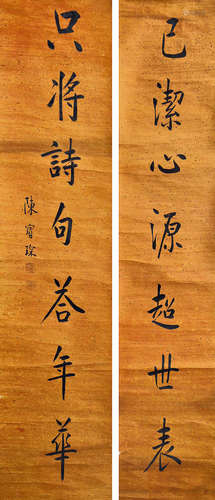 已潔心源超世表
只將詩句答年華
陳寶琛